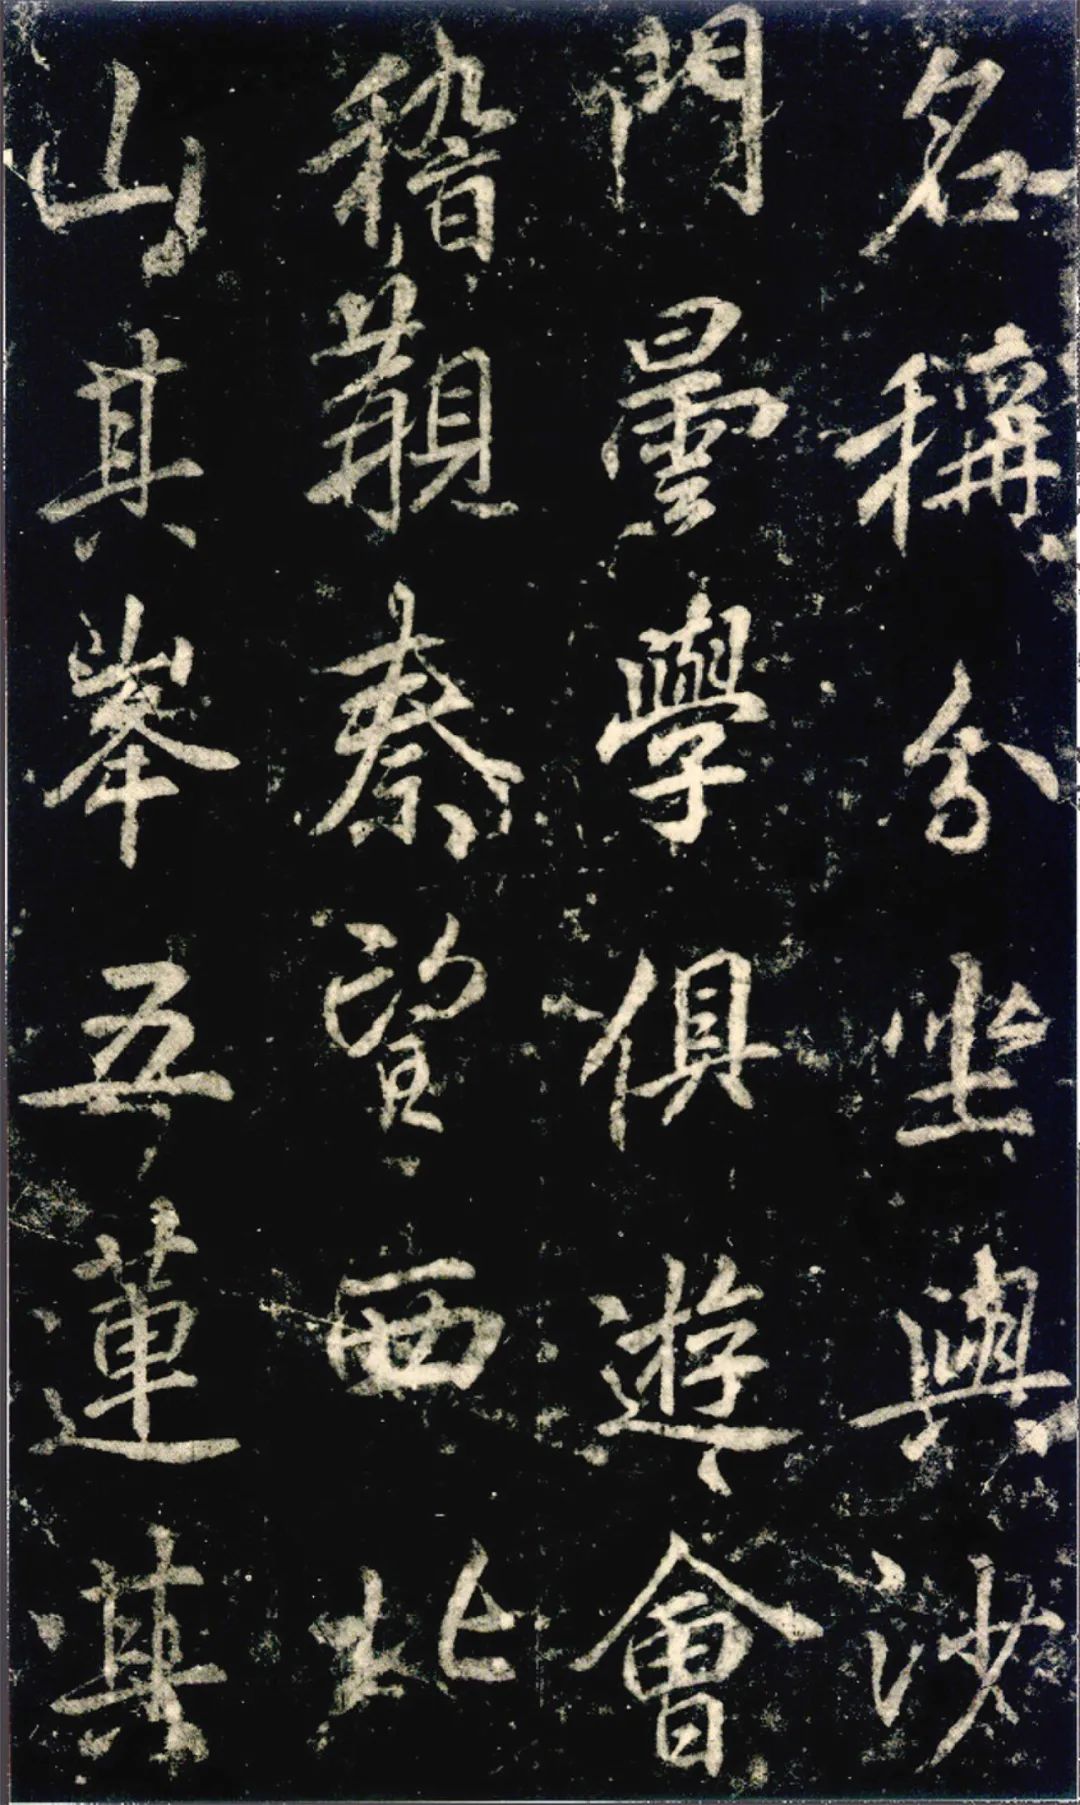 名稱分坐與沙
門曇學俱遊會
稽觀秦望西北
山其峯五蓮其